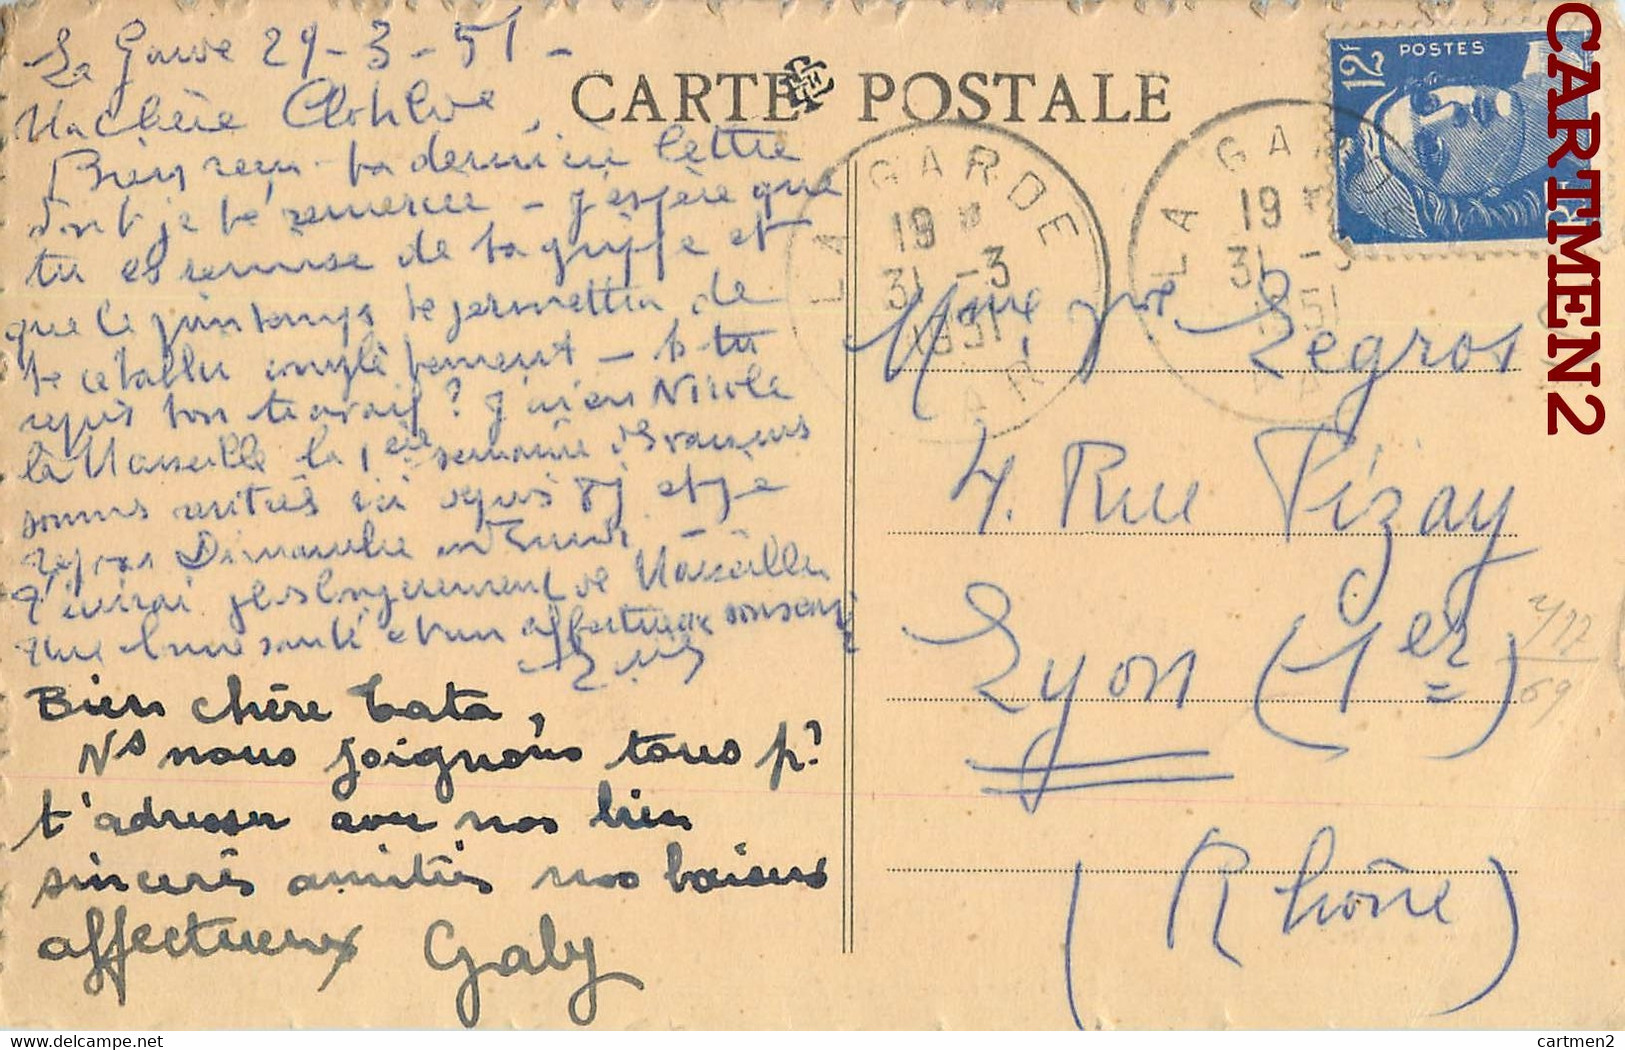 La Garde 29-3-51-
Ma chère Clothilde,
Bien reçu ta dernière lettre
dont je te remercie - j'espère que
tu es remise de ta grippe et
que le printemps te permettra de
te rétablir complètement - as tu
repris ton travail? J'ai eu Nicole
à Marseille la 1ère semaine des vacances
sommes rentrés ici depuis 8j et je
repars Dimanche
t'écrirai plus longuement de Marseille
Une bonne santé et un affectueux
Bien chère tata,
Ns nous joignons tous pr
t'adresser avec nos bien
sincères amitiés nos baisers
affectueux Gaby
CARTE POSTALE
LA GARDE
19 H
31 -3
1951
VAR
LA GARDE
19 H
31 -3
1951
VAR
12F POSTES
RF
Mme Legros
4. Rue Pizay
Lyon (1er)
(Rhône)
69
CARTMEN2
delcampe.net
cartmen2